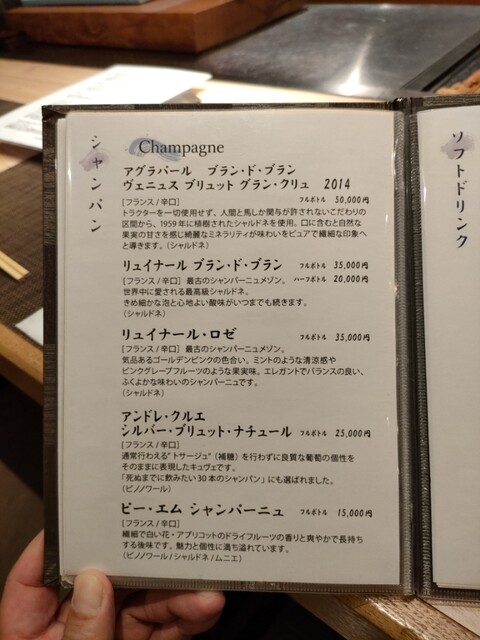 シャンパン
Champagne
アグラパール ブラン・ド・ブラン
ヴェニュス ブリュット グラン・クリュ 2014
[フランス / 辛口] フルボトル 50,000円
トラクターを一切使用せず、人間と馬しか関与が許されないこだわりの
区間から、1959年に植樹されたシャルドネを使用。口に含むと自然な
果実の甘さを感じ綺麗なミネラリティが味わいをピュアで繊細な印象へ
と導きます。(シャルドネ)
リュイナール ブラン・ド・ブラン フルボトル 35,000円
[フランス / 辛口] 最古のシャンパーニュメゾン。 ハーフボトル 20,000円
世界中に愛される最高級シャルドネ。
きめ細かな泡と心地よい酸味がいつまでも続きます。
(シャルドネ)
リュイナール・ロゼ フルボトル 35,000円
[フランス / 辛口] 最古のシャンパーニュメゾン。
気品あるゴールデンピンクの色合い。ミントのような清涼感や
ピンクグレープフルーツのような果実味。エレガントでバランスの良い、
ふくよかな味わいのシャンパーニュです。
(シャルドネ)
アンドレ・クルエ
シルバー・ブリュット・ナチュール フルボトル 25,000円
[フランス / 辛口]
通常行わえる"トサージュ"(補糖)を行わずに良質な葡萄の個性を
そのままに表現したキュヴェです。
「死ぬまでに飲みたい30本のシャンパン」にも選ばれました。
(ピノノワール)
ビー・エム シャンパーニュ フルボトル 15,000円
[フランス / 辛口]
繊細で白い花・アプリコットのドライフルーツの香りと爽やかで長持ち
する後味です。魅力と個性に満ち溢れています。
(ピノノワール / シャルドネ / ムニエ)
ソフトドリンク